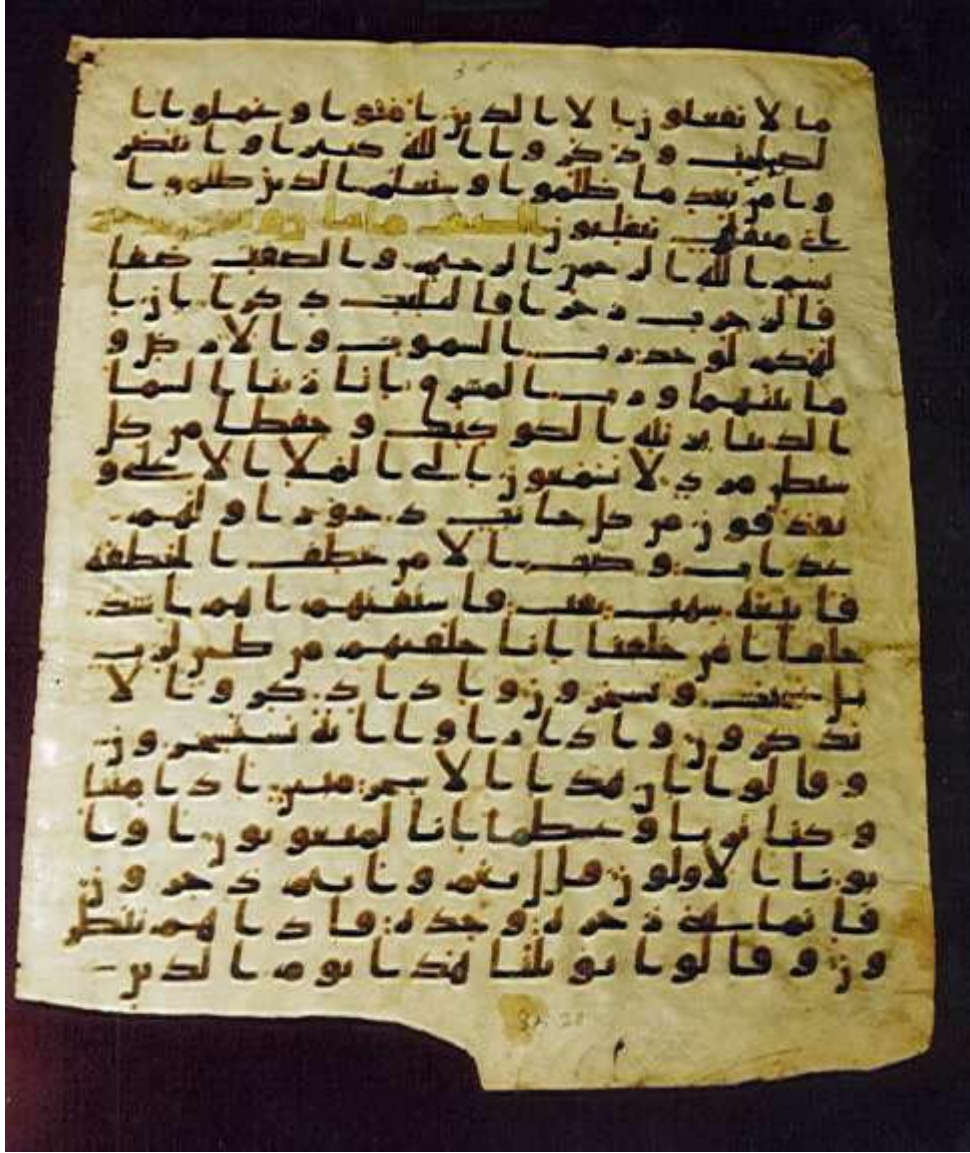 ما لا يفعلون الا الذين امنوا وعملوا ا
لصلحت وذكروا الله كثيرا وانتصر
وا من بعد ما ظلموا وسيعلم الذين ظلموا ا
ى منقلب ينقلبون
بسم الله الرحمن الرحيم والصفت صفا
فالزجرت زجرا فالتليت ذكرا ان ا
لهكم لوحد رب السموت والارض و
ما بينهما ورب المشرق انا زينا السما
الدنيا بزينه الكوكب وحفظا من كل
شيطن مرد لا يسمعون الى الملا الاعلى و
يقذفون من كل جانب دحورا ولهم
عذاب وصب الا من خطف الخطفه
فاتبعه شهب ثقب فاستفتهم اهم اشد
خلقا ام من خلقنا انا خلقنهم من طين لزب
بل عجبت ويسخرون واذا ذكروا لا
يذكرون واذا راوا ايه يستسخرون
وقالوا ان هذا الا سحر مبين اذا متنا
وكنا تربا وعظما انا لمبعوثون او ا
باونا الاولون قل نعم وانتم دخرون
فانما هى زجره وحده فاذا هم ينظر
ون وقالوا يويلنا هذا يوم الدين